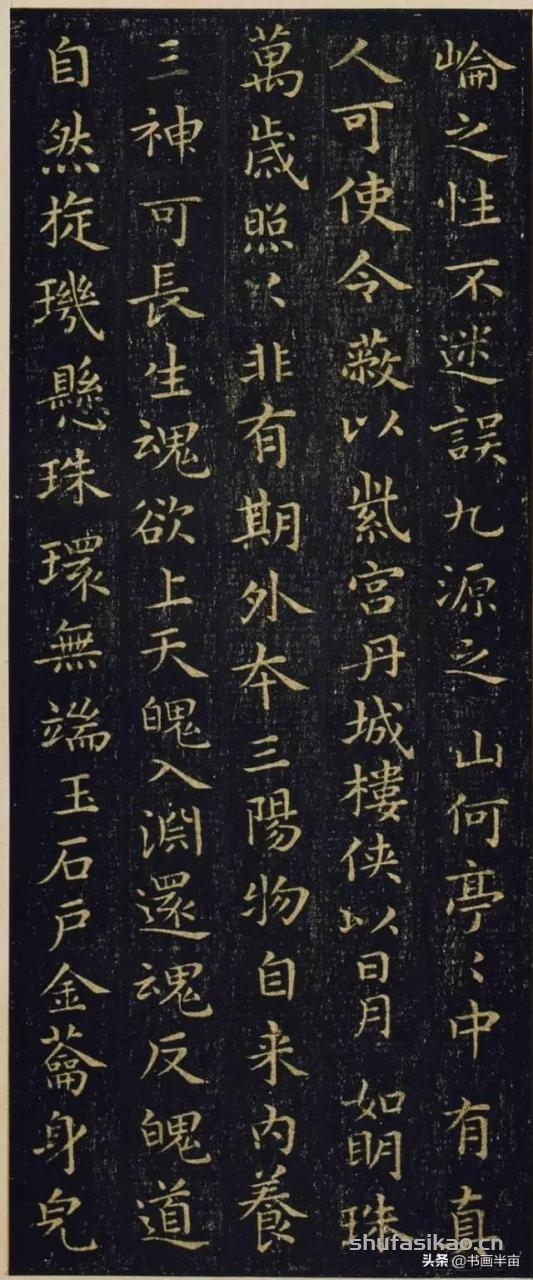 崘之性不迷誤九源之山何亭〻中有真
人可使令蔽以紫宮丹城樓侠以日月如眀珠
萬歲照〻非有期外夲三陽物自来内養
三神可長生魂欲上天魄入淵還魂反魄道
自然旋璣懸珠環無端玉石戶金蘥身完
shufasikao.cn
头条 @书画半亩